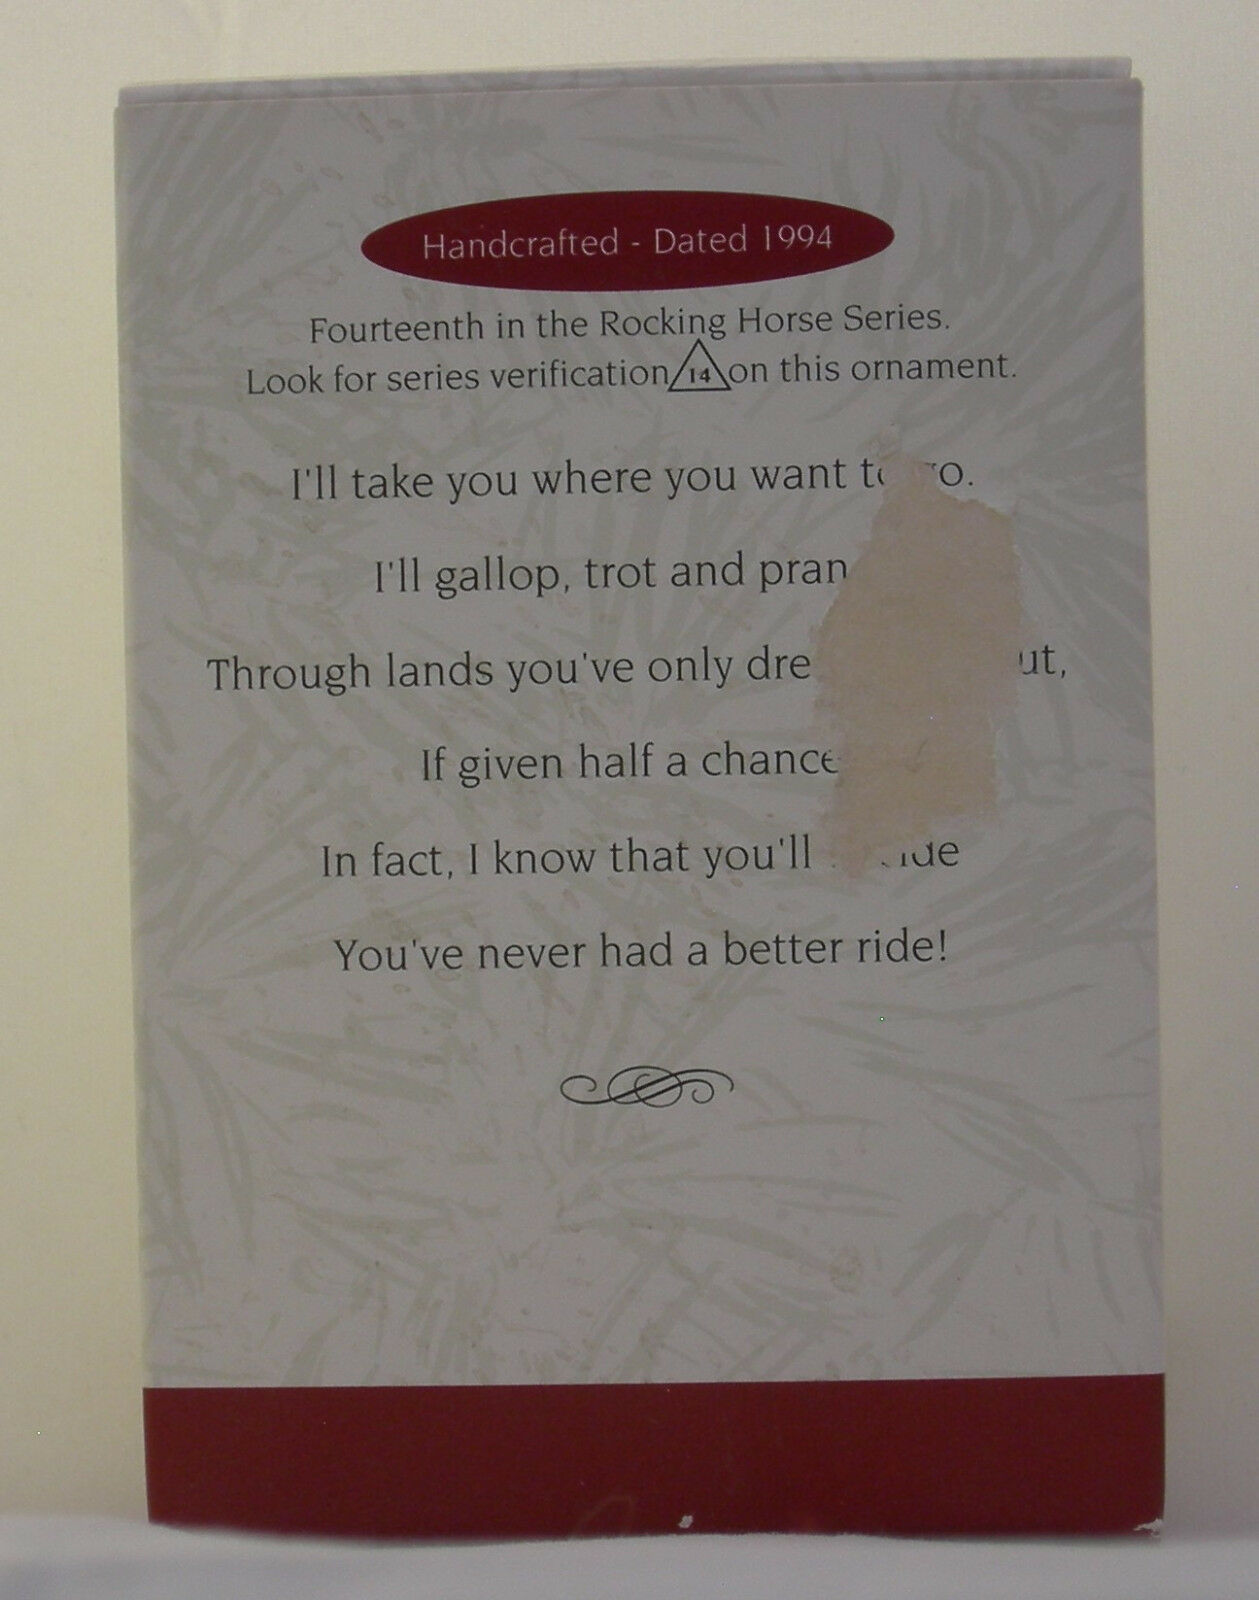 Handcrafted - Dated 1994
Fourteenth in the Rocking Horse Series.
Look for series verification 14 on this ornament.
I'll take you where you want
I'll gallop, trot and
Through lands you've only
If given half a chance
In fact, I know that you'll
You've never had a better ride!